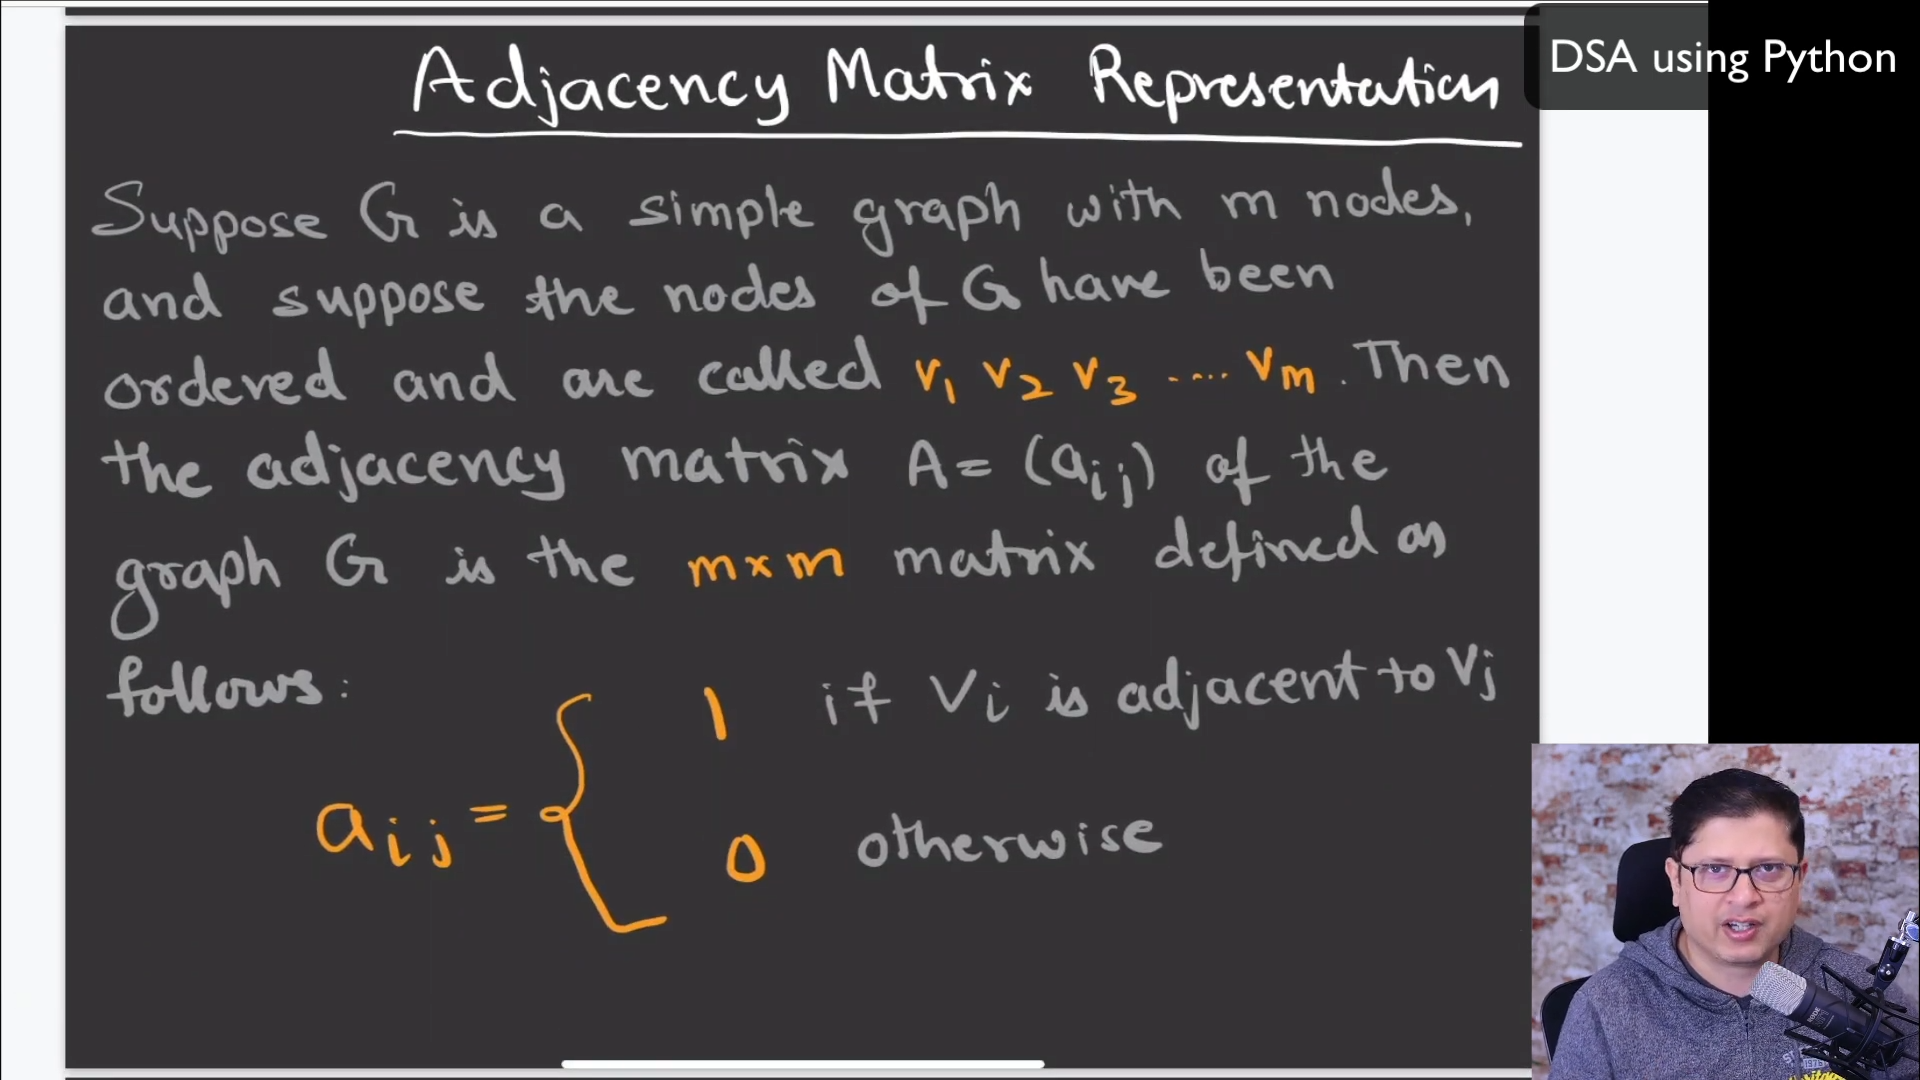 Adjacency Matrix Representation
DSA using Python
Suppose G is a simple graph with m nodes,
and suppose the nodes of G have been
ordered and are called v₁ v₂ v₃ .... vₘ. Then
the adjacency matrix A = (aᵢⱼ) of the
graph G is the m×m matrix defined as
follows:
1 if Vᵢ is adjacent to Vⱼ
aᵢⱼ =
0 otherwise